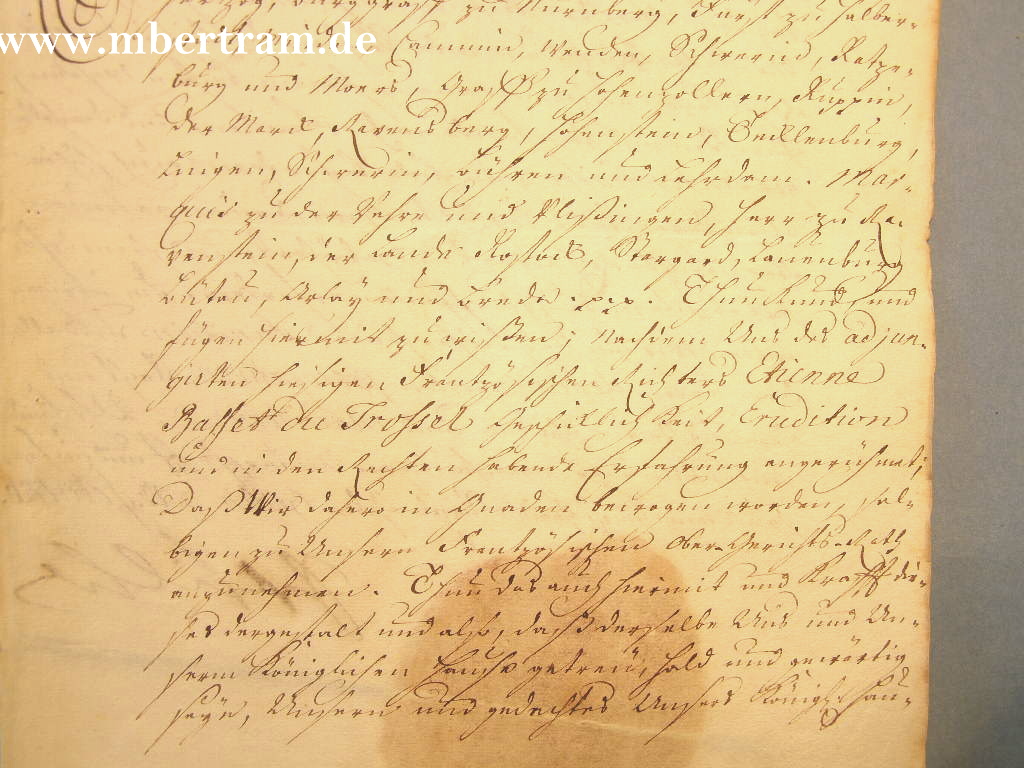 www.mbertram.de
hertzog, Burggraff zu Nürnberg, Fürst zu Halber-
stadt, Minden, Cammin, Wenden, Schwerin, Ratze-
burg und Moers, Graff zu Hohenzollern, Ruppin,
der Marck, Ravensberg, Hohenstein, Tecklenburg,
Lingen, Schwerin, Bühren und Lehrdam. Mar-
quis zu der Vehre und Vlißingen, Herr zu Ra-
venstein, der Lande Rostock, Stargard, Lauenburg
Bütau, Arlay und Breda .p.p.p. Thun Kund und
fügen hiermit zu wißen; Nachdem Uns des adjun-
girten hiesigen Frantzösischen Richters Etienne
Basset du Trossel Geschicklichkeit, Erudition
und in den Rechten habende Erfahrung angerühmet;
Daß Wir dahero in Gnaden bewogen worden, sel-
bigen zu Unserm Frantzösischen Ober-Gerichts-Rath
anzunehmen. Thun das auch hiermit und Krafft die-
ses dergestalt und also, daß derselbe Uns und Un-
serm Königlichen Hause getreu, hold und gewärtig
seye, Unsern und gedachtes Unsers Königl. Hau-